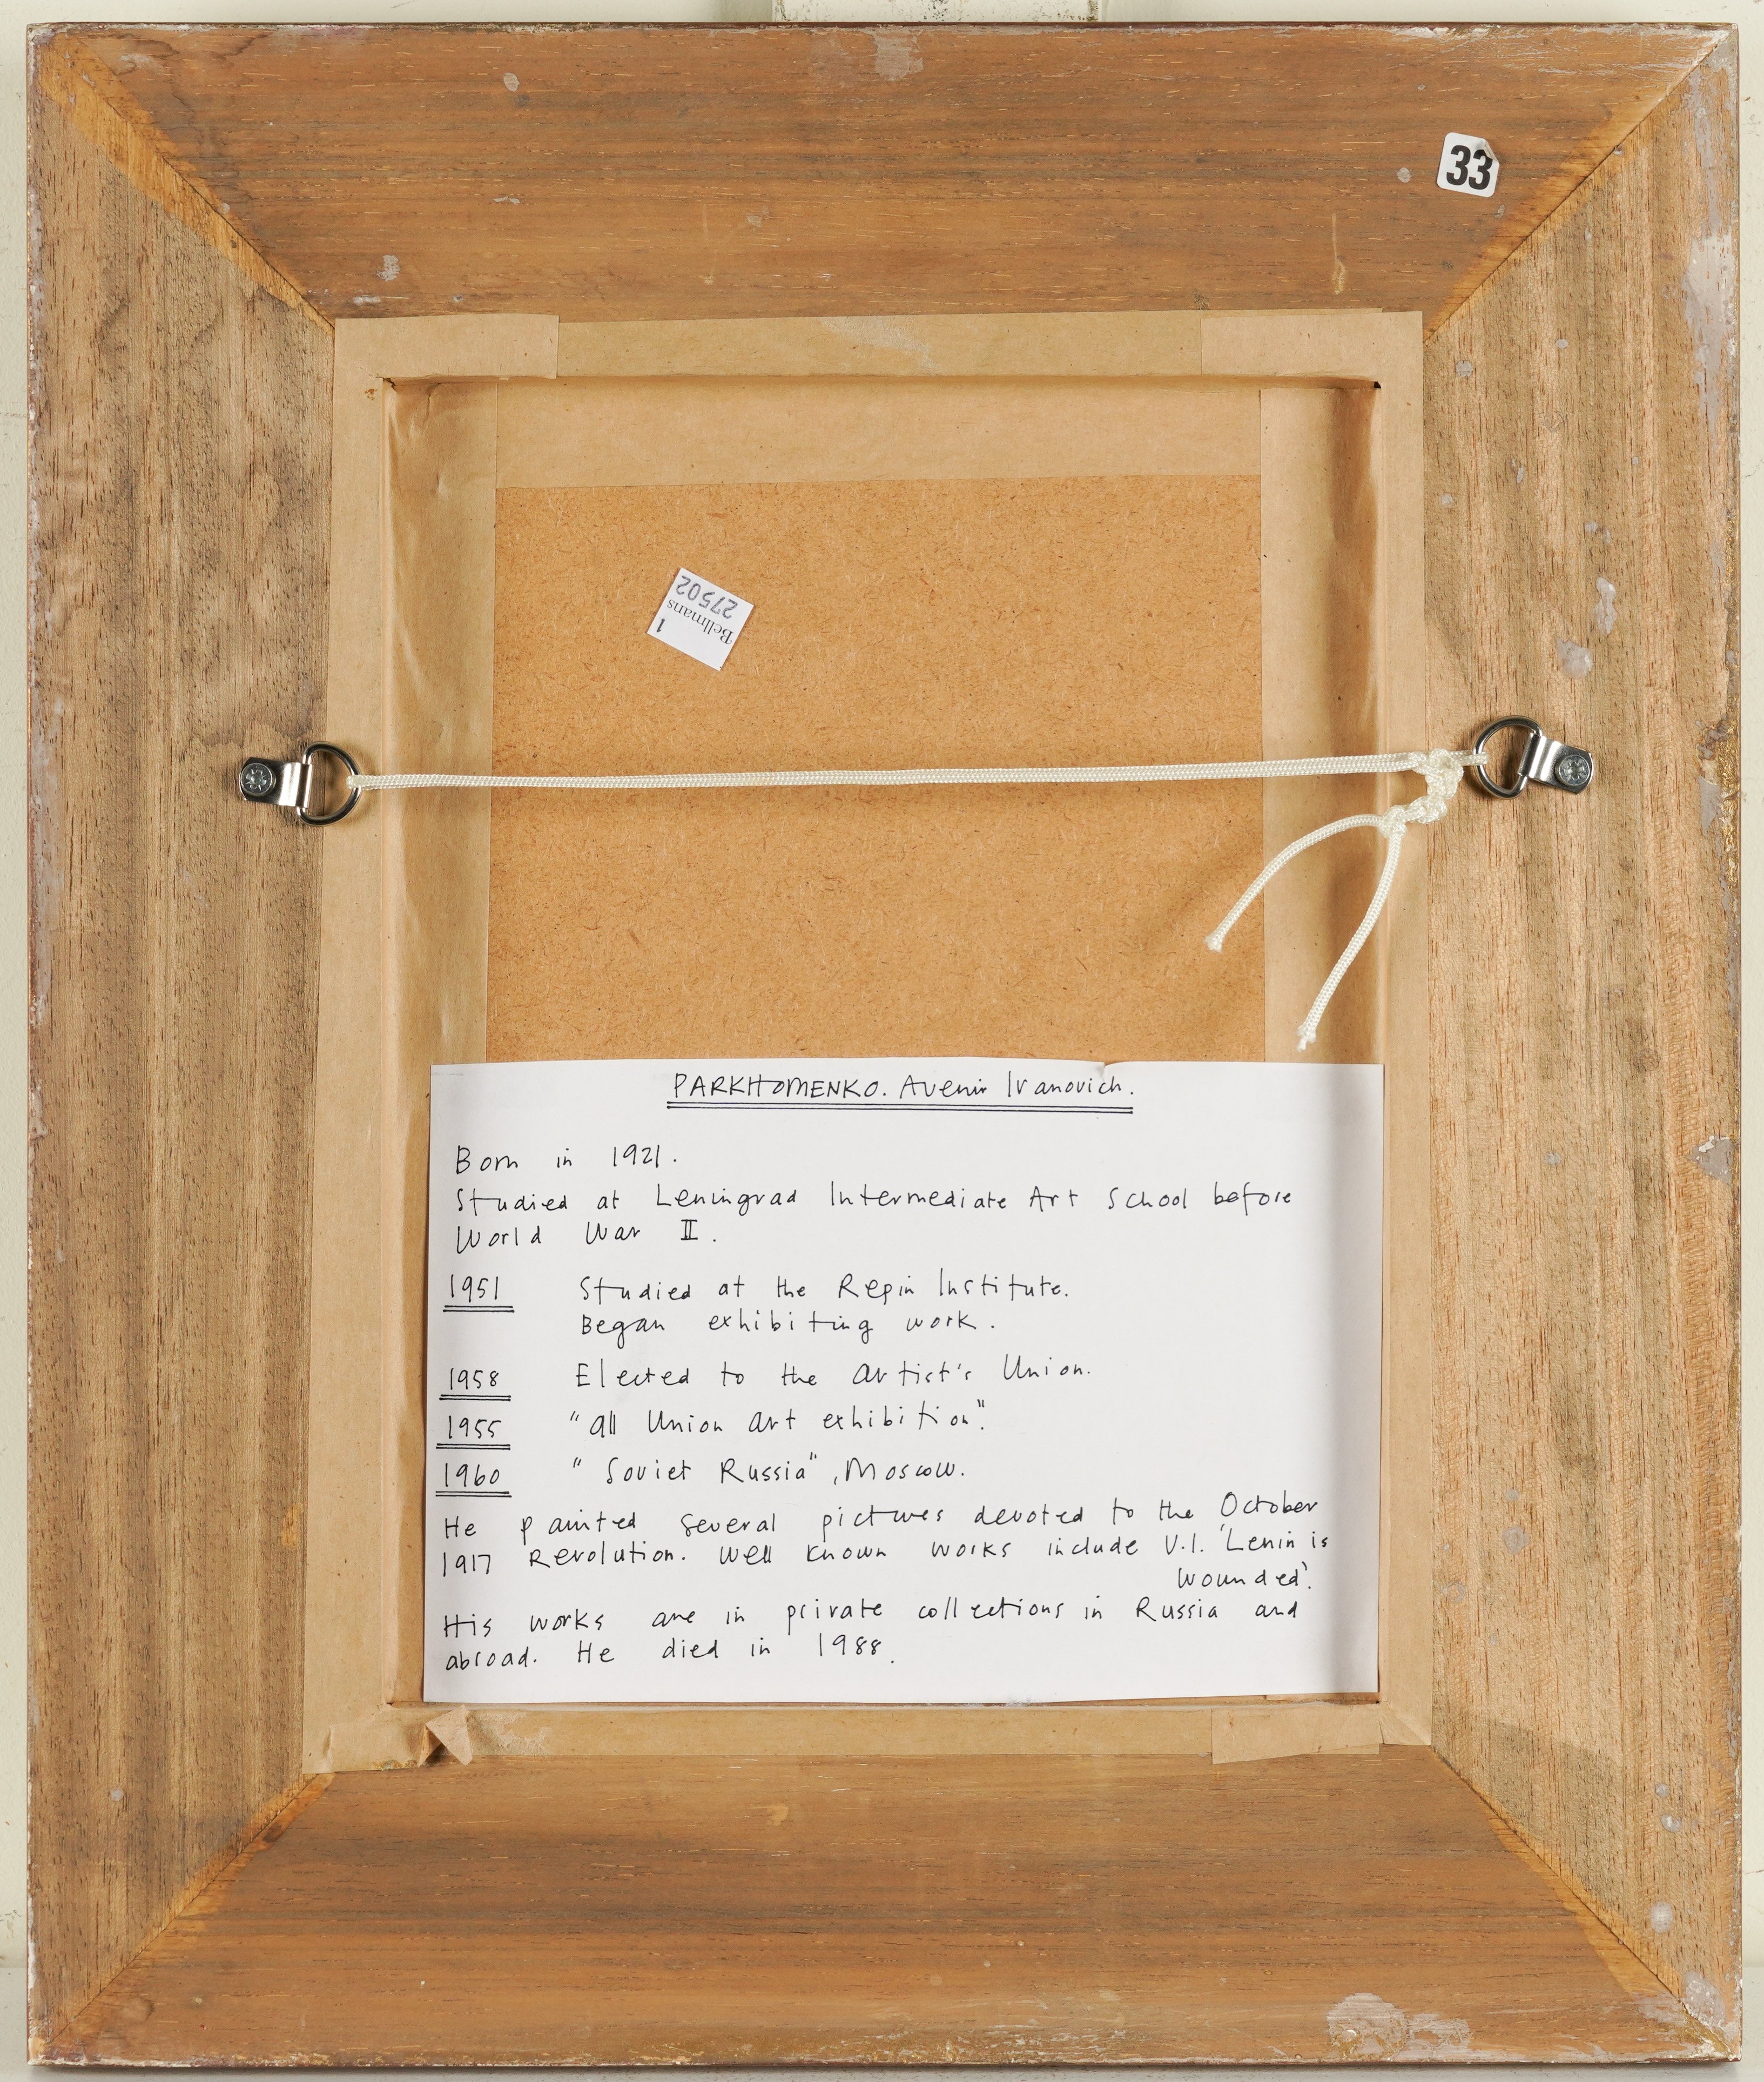 33
27502
Bellmans
1
PARKHOMENKO. Avenir Ivanovich.
Born in 1921.
Studied at Leningrad Intermediate Art School before
World War II.
1951 Studied at the Repin Institute.
Began exhibiting work.
1958 Elected to the Artist's Union.
1955 "All Union Art exhibition".
1960 "Soviet Russia", Moscow.
He painted several pictures devoted to the October
1917 Revolution. Well known works include V.I. 'Lenin is
wounded'.
His works are in private collections in Russia and
abroad. He died in 1988.